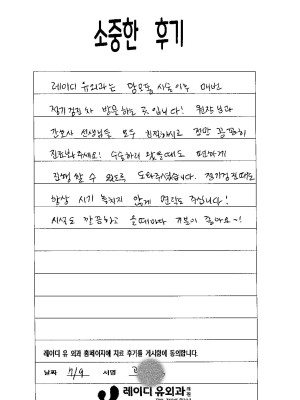 소중한 후기
레이디 유외과는 맘모톰 시술 이후 매번
정기검진차 방문하는 곳입니다! 원장님과
간호사 선생님들 모두 친절하시고 정말 꼼꼼히
진료봐주세요! 수술하러 왔을때도 편하게
진행 할 수 있도록 도와주셨습니다. 정기검진때도
항상 시기 놓치지 않게 연락도 주십니다!
시설도 깔끔하고 올때마다 기분이 좋아요~!
레이디 유 외과 홈페이지에 치료 후기를 게시함에 동의합니다.
날짜 7/9 서명
레이디 유외과 의원